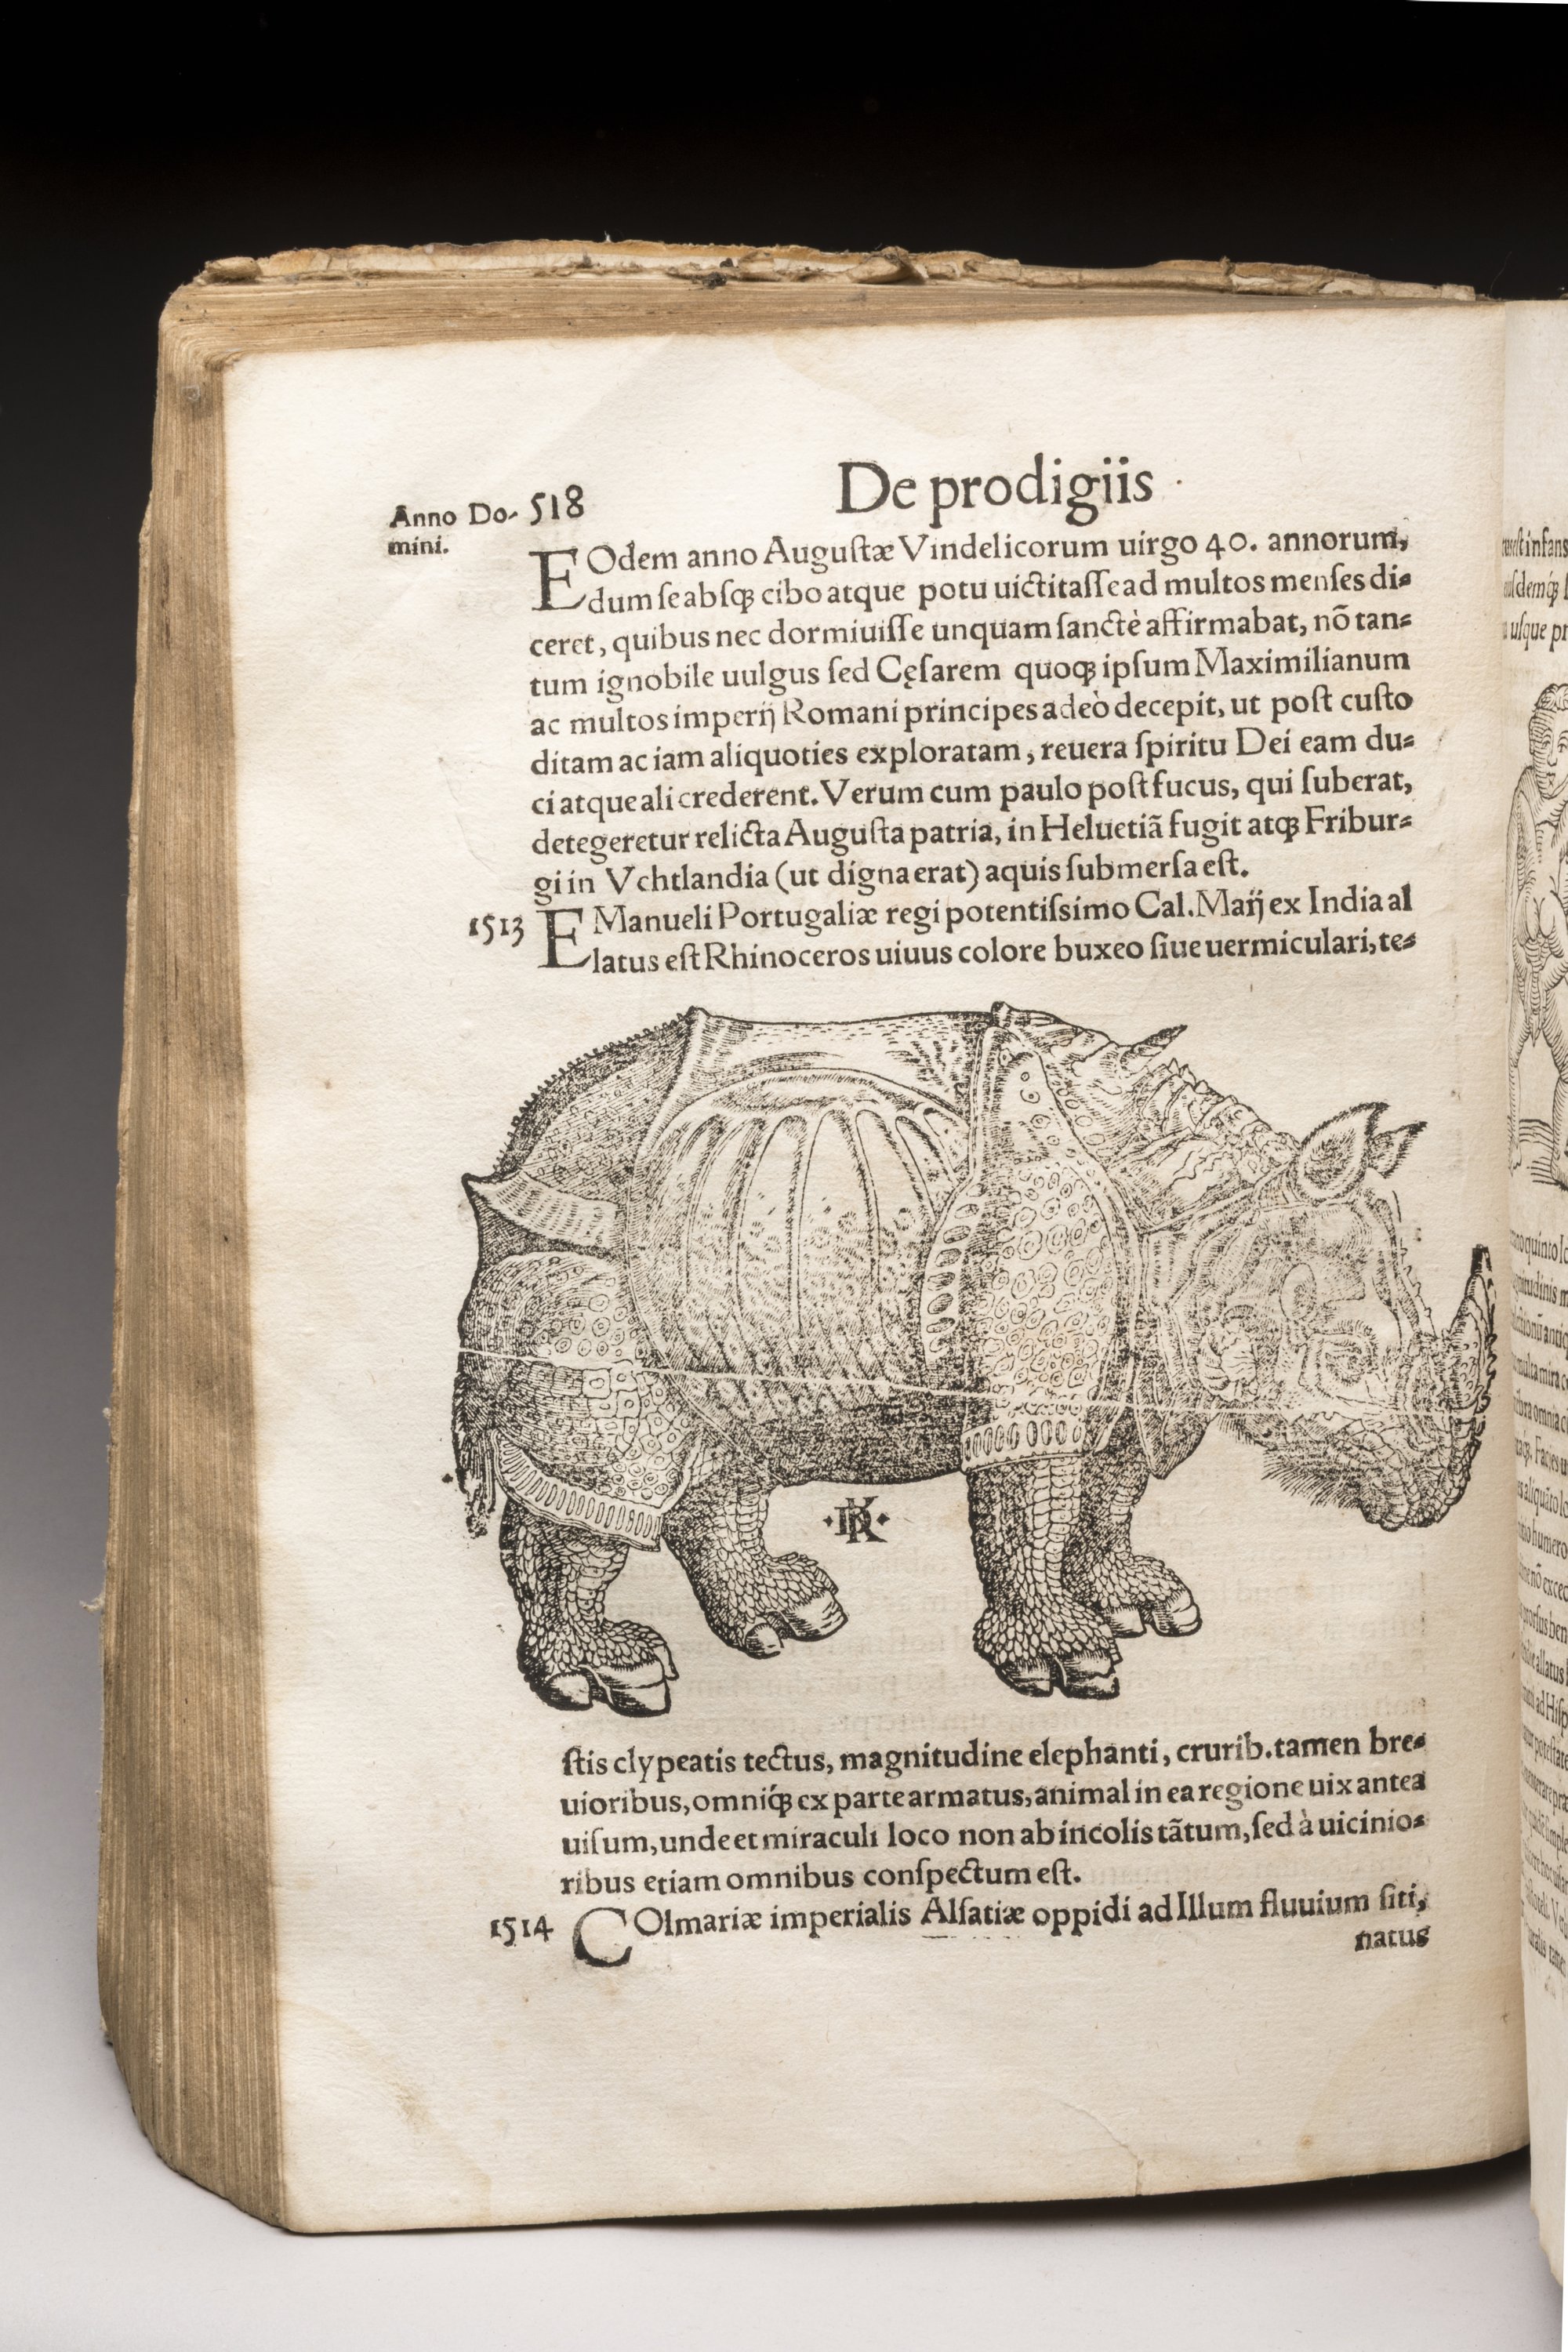 Anno Do- 518 De prodigiis
mini.
EOdem anno Auguſtæ Vindelicorum uirgo 40. annorum,
dum ſe abſqꝫ cibo atque potu uictitaſſe ad multos menſes di⸗
ceret, quibus nec dormiuiſſe unquam ſanctè affirmabat, nõ tan⸗
tum ignobile uulgus ſed Cęſarem quoqꝫ ipſum Maximilianum
ac multos imperij Romani principes adeò decepit, ut poſt cuſto
ditam ac iam aliquoties exploratam, reuera ſpiritu Dei eam du⸗
ci atque ali crederent. Verum cum paulo poſt fucus, qui ſuberat,
detegeretur relicta Auguſta patria, in Heluetiã fugit atqꝫ Fribur⸗
gi in Vchtlandia (ut digna erat) aquis ſubmerſa eſt.
1513 EManueli Portugaliæ regi potentiſsimo Cal. Maij ex India al
latus eſt Rhinoceros uiuus colore buxeo ſiue uermiculari, te⸗
ſtis clypeatis tectus, magnitudine elephanti, crurib. tamen bre⸗
uioribus, omniqꝫ́ ex parte armatus, animal in ea regione uix antea
uiſum, unde et miraculi loco non ab incolis tãtum, ſed à uicinio⸗
ribus etiam omnibus conſpectum eſt.
1514 COlmariæ imperialis Alſatiæ oppidi ad Illum fluuium ſiti,
natus